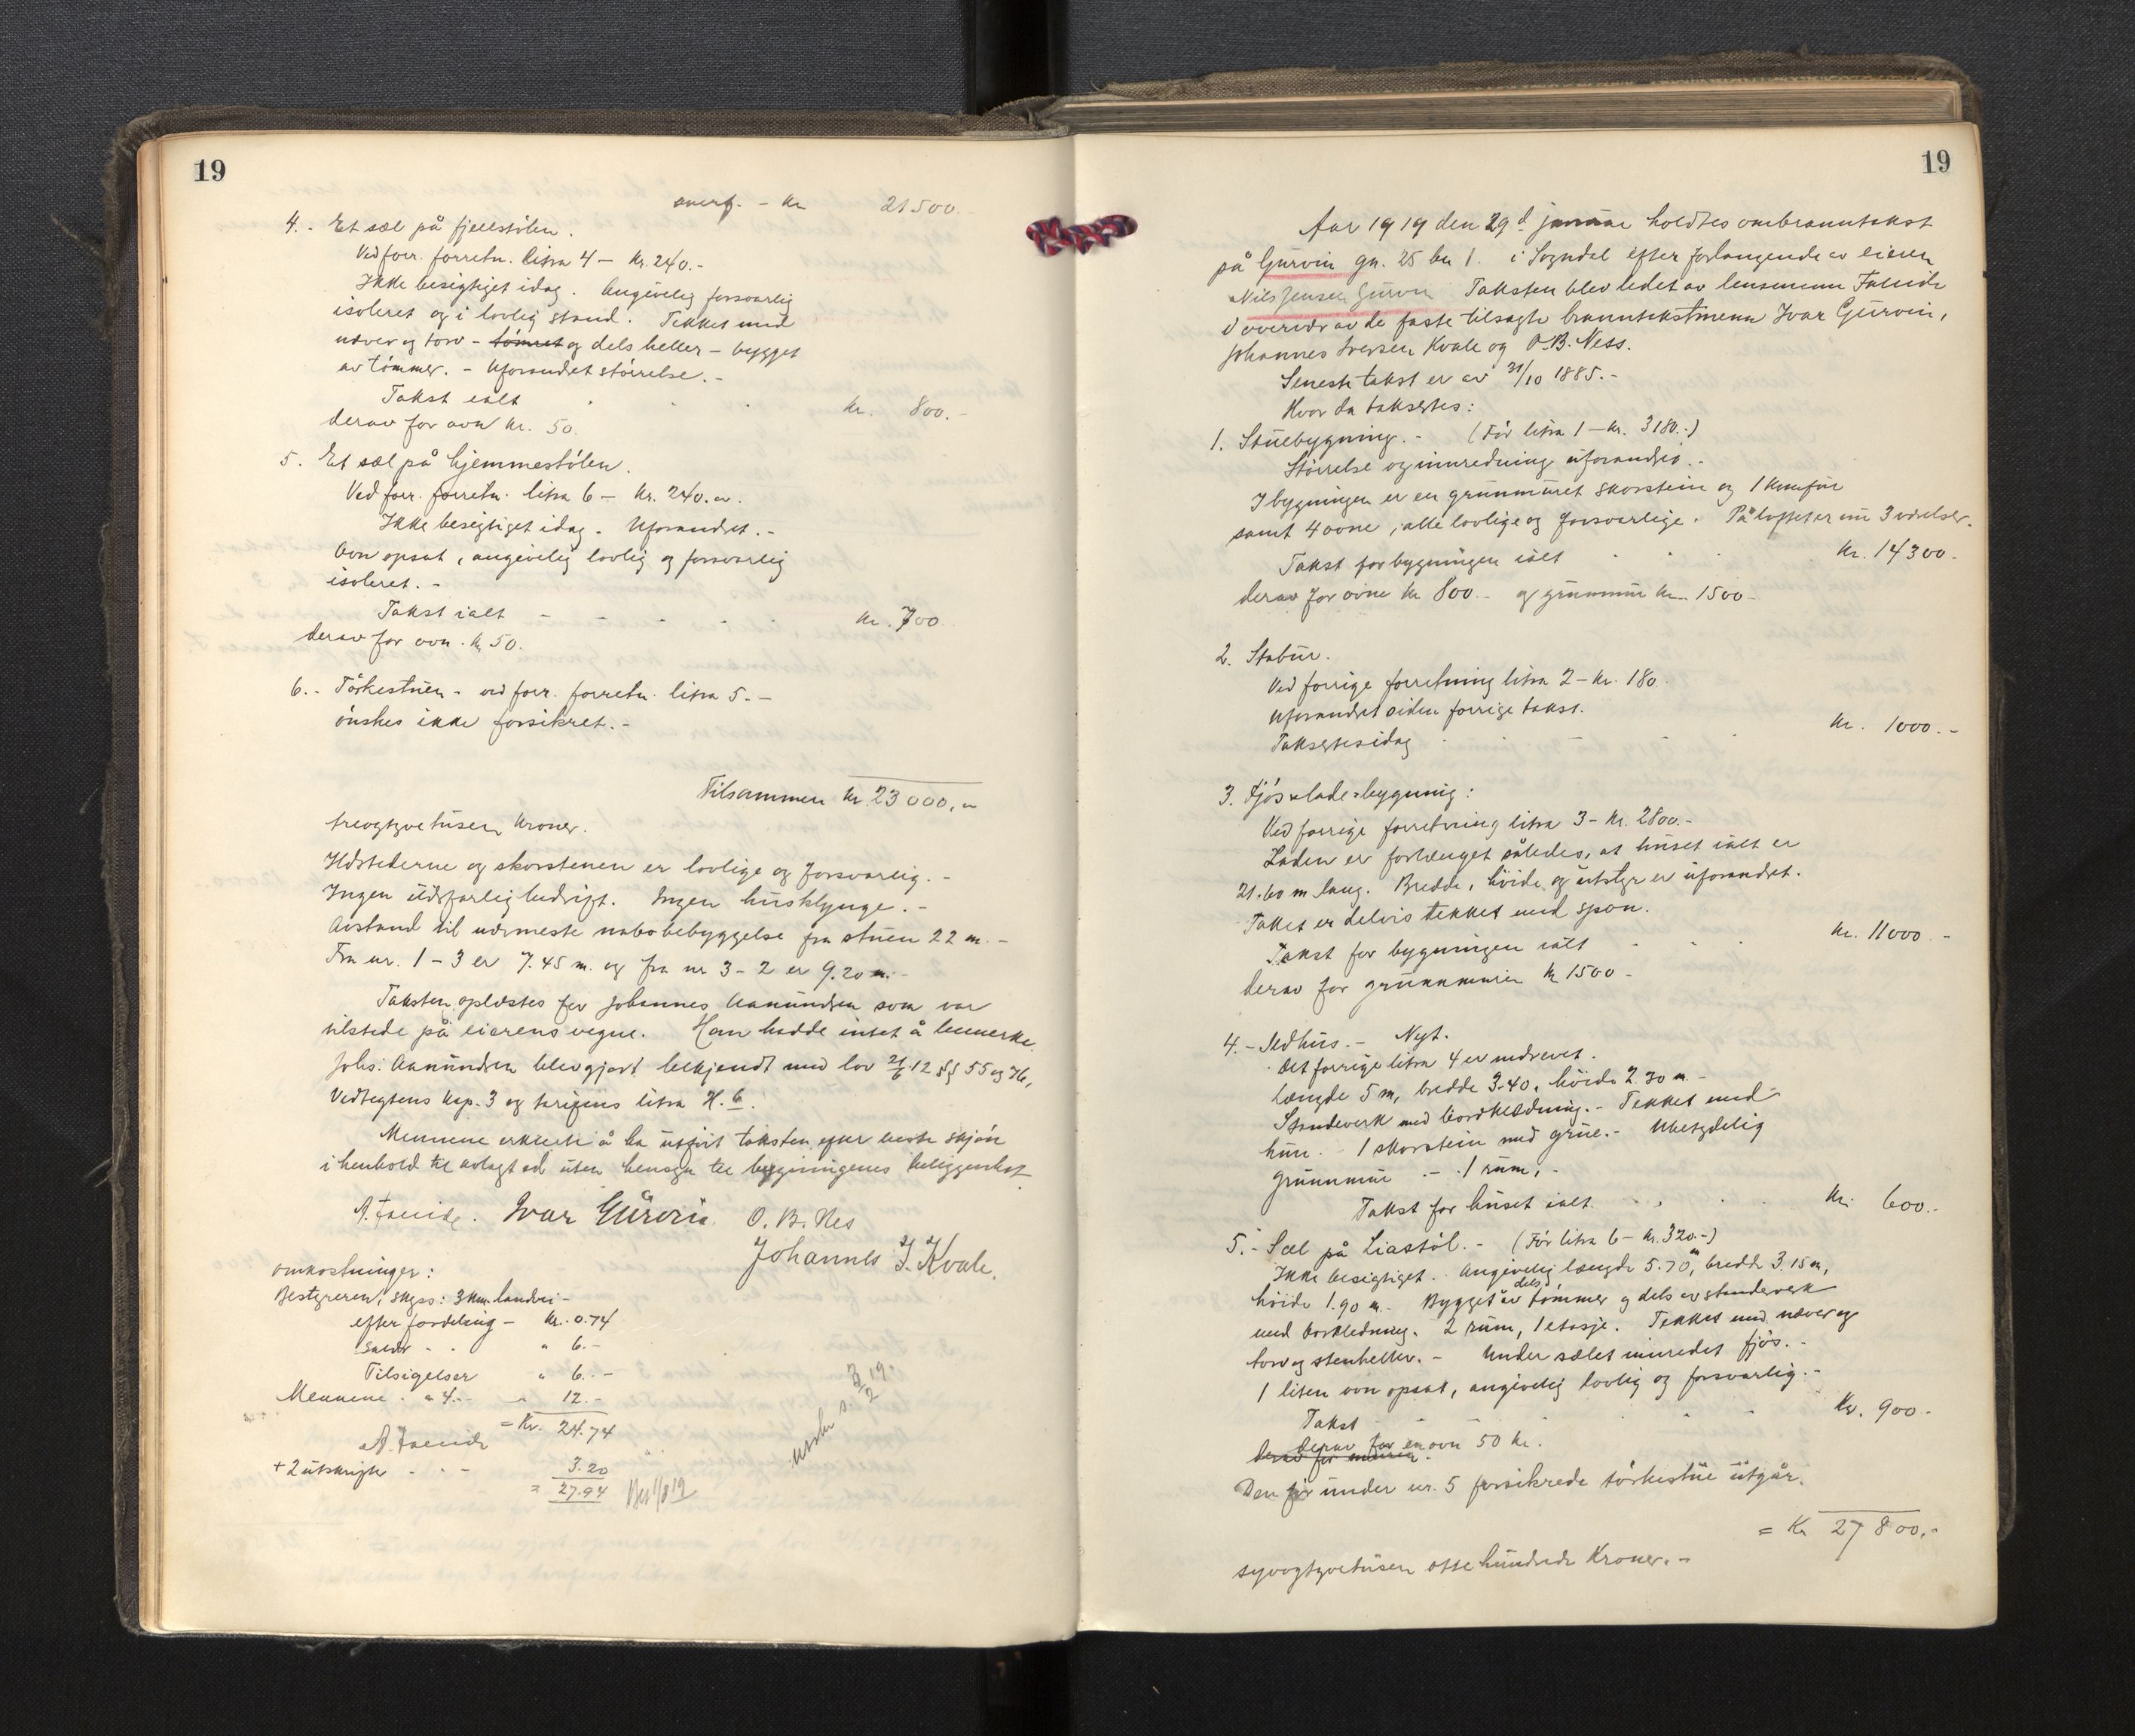 19
overf. - kr 21500.-
4. - Et sæl på fjellstölen.
Ved forr. forretn. litra 4 - kr. 240.-
Ikke besigtiget idag. Angivelig forsvarlig
isoleret og i lovlig stand. Tekket med
næver og torv - tømret og dels heller - bygget
av tömmer. - Uforandret störrelse. -
Takst ialt kr. 800.-
derav for ovn kr. 50.
5. Et sæl på hjemmestölen.
Ved forr. forretn. litra 6 - kr. 240.
Ikke besigtiget idag. Uforandret. -
Ovn opsat, angivelig lovlig og forsvarlig
isoleret. -
Takst ialt - kr. 700
derav for ovn. kr 50.
6. - Törkestuen - ved forr. forretn. litra 5. -
önskes ikke forsikret. -
Tilsammen kr. 23000,-
treogtyvetusen kroner.
Ildstederne og skorstenen er lovlige og forsvarlig. -
Ingen ildsfarlig bedrift. Ingen husklynge. -
Avstand til nærmeste nabobebyggelse fra stuen 22 m. -
Fra nr. 1 - 3 er 7.45 m. og fra nr 3 - 2 er 9.20 m. -
Taksten oplæstes for Johannes Aamundsen som var
tilstede på eierens vegne. Han hadde intet å bemerke.
Johs. Aamundsen blev gjort bekjendt med lov 21/6 12 §§ 55 og 76,
Vedtegtens kap. 3 og tarifens litra H. 6.
Mennene erklærte å ha utfört taksten efter beste skjön
i henhold til avlagt ed uten hensyn til bygningenes beliggenhet.
A. Faleide. Ivar Gürvin. O. B. Nes
Johannes I. Kvale.
Omkostninger:
Bestyreren, skyss: 3 km. landvei -
efter fordeling - kr. 0.74
Salær - " 6.-
Tilsigelser " 6.-
Mennene " 4.- " 12.-
= Kr. 24.74
A. Faleide
+ 2 utskrifter - 3.20
= 27.94
19
Aar 1919 den 29d januar holdtes ombranntakst
på Gurvin gn. 25 bn 1. i Sogndal efter forlangende av eieren
Nils Jensen Gurvin Taksten blev ledet av lensmann Faleide
i overvær av de faste tilsagte branntakstmenn Ivar Gürvin,
Johannes Iversen Kvale og O. B. Ness.
Seneste takst er av 31/10 1885. -
Hvor da taksertes:
1. Stuebygning. - (För litra 1 - kr. 3180.-)
Störrelse og innredning uforandret. -
I bygningen er en grunnmuret skorstein og 1 komfur
samt 4 ovne, alle lovlige og forsvarlige. På loftet er nu 3 værelser.
Takst for bygningen ialt kr. 14300.-
derav for ovne kr 800.- og grunnmur kr. 1500.-
2. Stabur.
Ved forrige forretning litra 2 - kr. 180.
Uforandret siden forrige takst.
Taksertes idag kr. 1000.-
3. Fjös & lade-bygning:
Ved forrige forretning litra 3 - kr. 2800.-
Laden er forlænget således, at huset ialt er
21.60 m lang. Bredde, höide og utstyr er uforandret.
Taket er delvis tekket med spon.
Takst for bygningen ialt - kr. 11000.-
derav for grunnmuren kr 1500 -
4. - Ildhus. - Nyt.
Det forrige litra 4 er nedrevet.
Længde 5 m, bredde 3.40, höide 2.30 m. -
Standeverk med bordklædning. - Tekket med
hun. - 1 skorstein med grue. - Ubetydelig
grunnmur - 1 rum. -
Takst for huset ialt kr. 600.-
5. - Sæl på Liastöl. - (För litra 6 - kr. 320.-)
Ikke besigtiget. Angivelig længde 5.70 m, bredde 3.15 m,
höide 1.90 m. - Bygget dels av tömmer og dels av standeverk
med bordkledning. 2 rum, 1 etasje. Tekket med næver og
torv og stenheller. - Under sælet innredet fjös. -
1 liten ovn opsat, angivelig lovlig og forsvarlig. -
Takst Kr. 900.-
derav for en ovn 50 kr.
derav for muren.
Den för under nr. 5 forsikrede törkestue utgår.
= Kr 27800.-
syvogtyvetusen ottehundrede Kroner. -